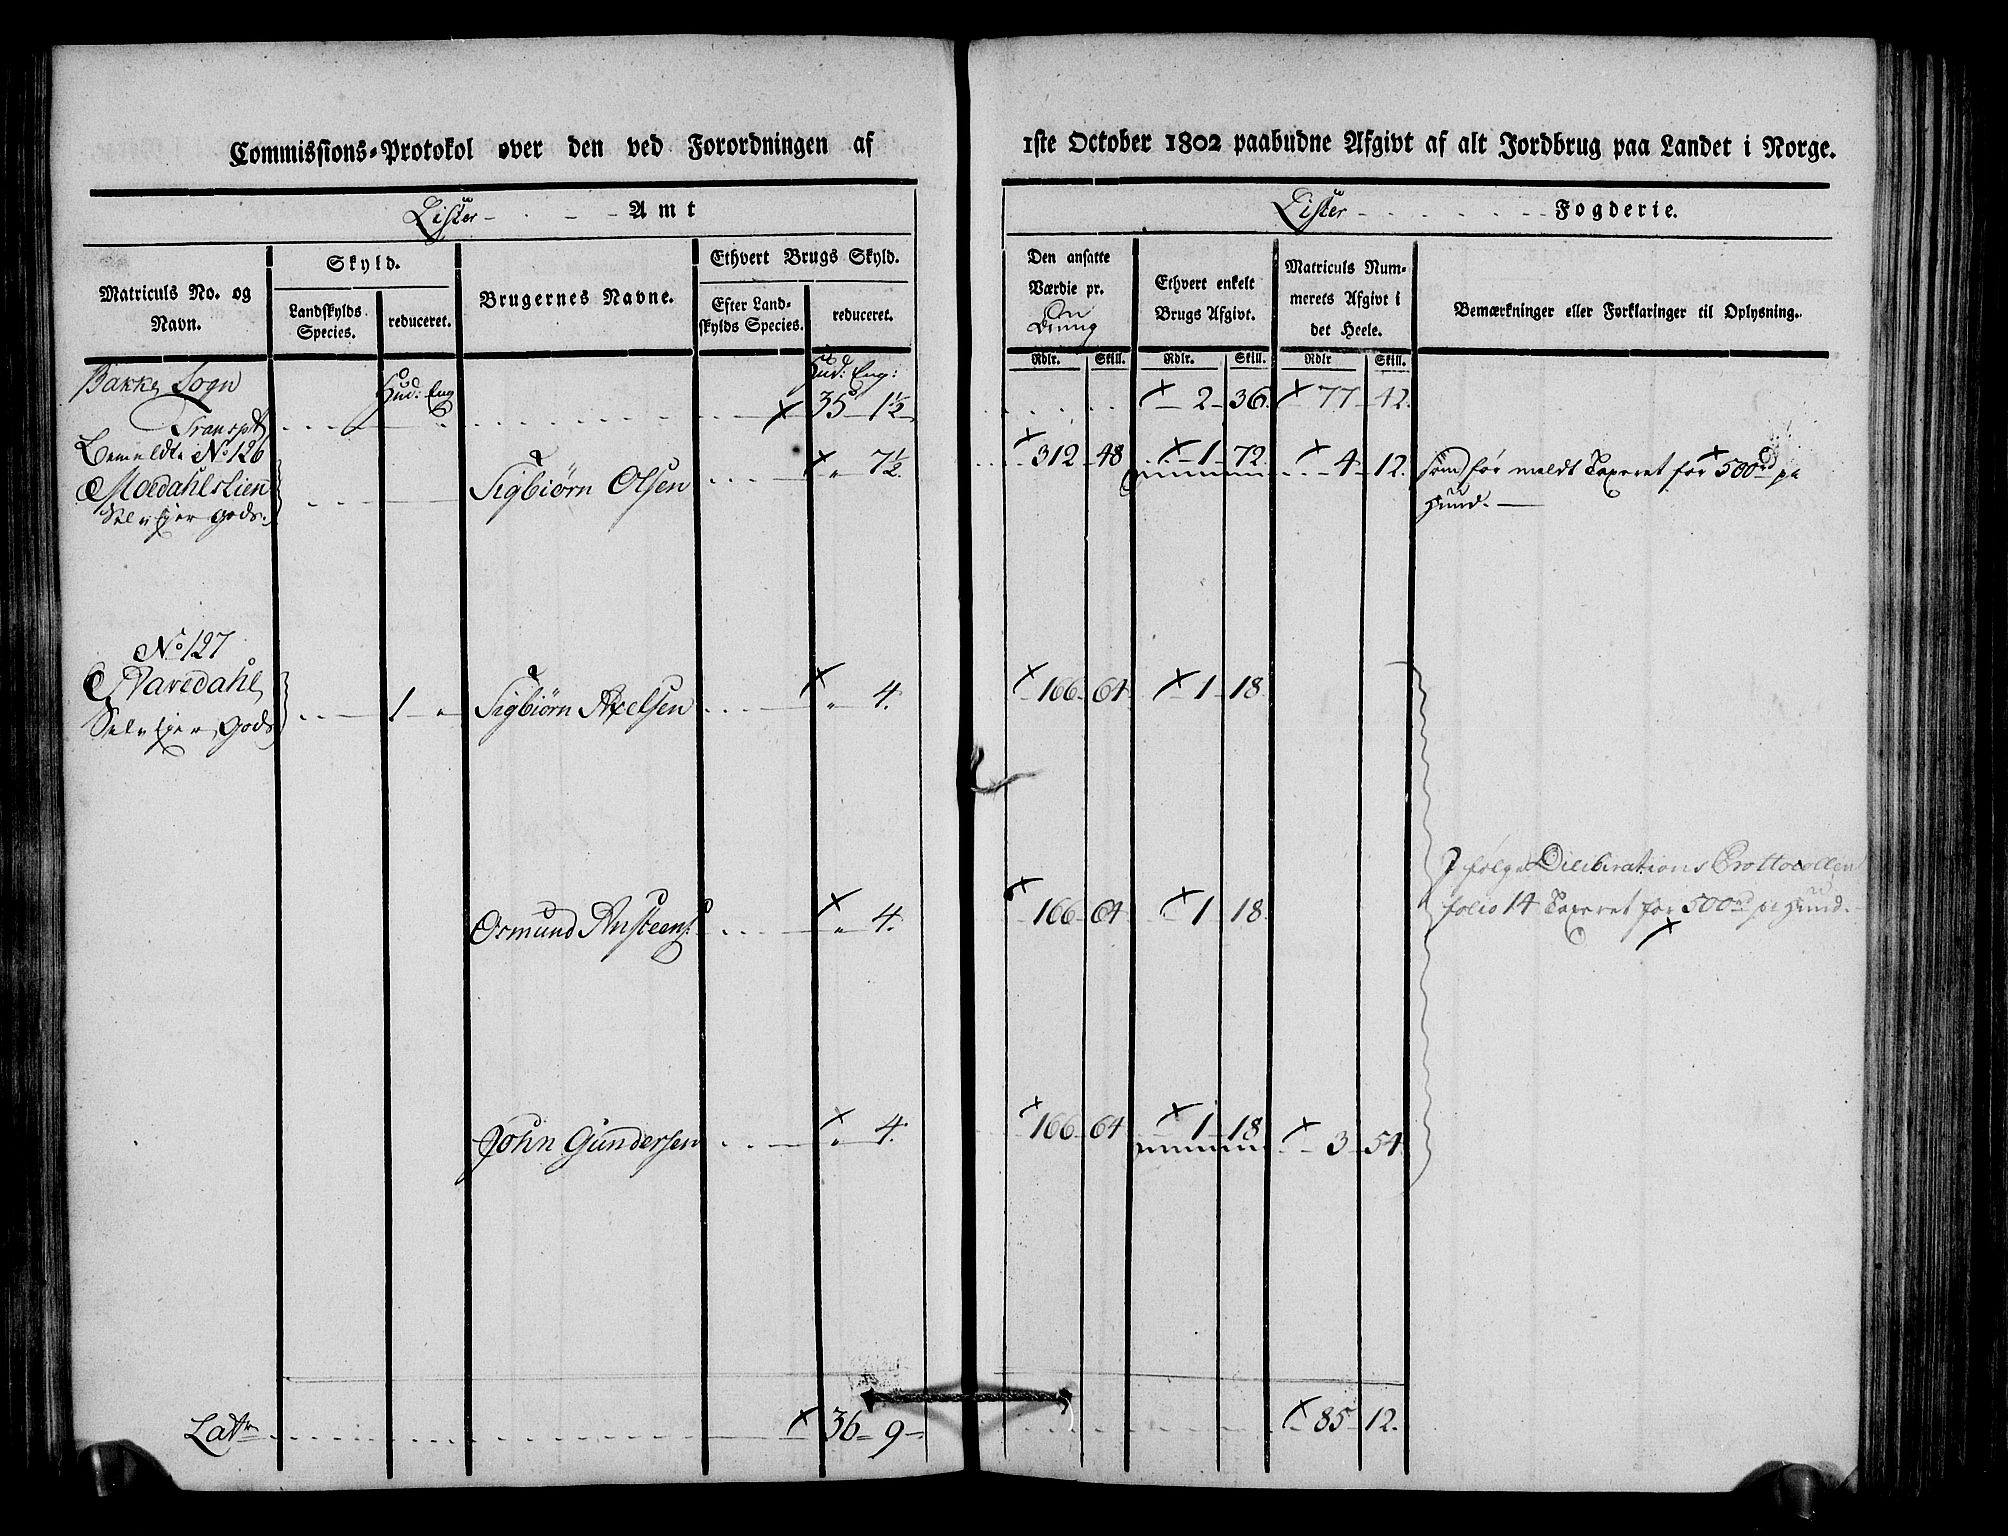 Commissions-Protokol over den ved Forordningen af
1ste October 1802 paabudne Afgivt af alt Jordbrug paa Landet i Norge.
Lister Amt
Lister Fogderie.
Matriculs No. og
Navn.
Skyld.
Landskylds
Species.
reduceret.
Brugernes Navne.
Ethvert Brugs Skyld.
Efter Land-
skylds Species.
reduceret.
Den ansatte
Værdie pr.
Rdlr. Skill.
Ethvert enkelt
Brugs Afgivt.
Rdlr. Skill.
Matriculs Num-
merets Afgivt i
det Heele.
Rdlr Skill.
Bemærkninger eller Forklaringer til Oplysning.
Bakke Sogn Hud: Eng Hud: Eng:
Transpt 35 1½ 2 36 77 42
Bemeldte No 126 7½ 312 48 1 72 4 12
Moedahlslien Sigbiørn Olsen
Selvejer gods.
som før meldt Taxeret for 500rd pr
Hund.
No 127
Selvejer Gods 1 Sigbiørn Axelsen 4. 166 64 1 18
Osmund Ansteens: 4. 166 64 1 18
I følge Deliberations Prottocollen
folio 14 Taxeret for 500rd pr Hund.
John Gundersen 4. 166 64 1 18 3 54
Latr 36 9 85 12.